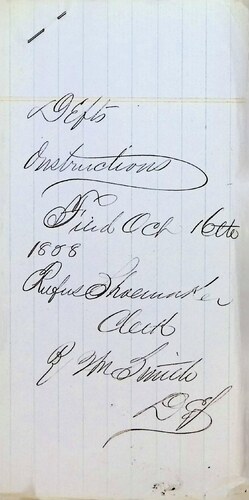 Defts
Instructions
Filed Oct 16th
1858
Rufus Shoemaker
Clerk
By Wm Smith
D Cf